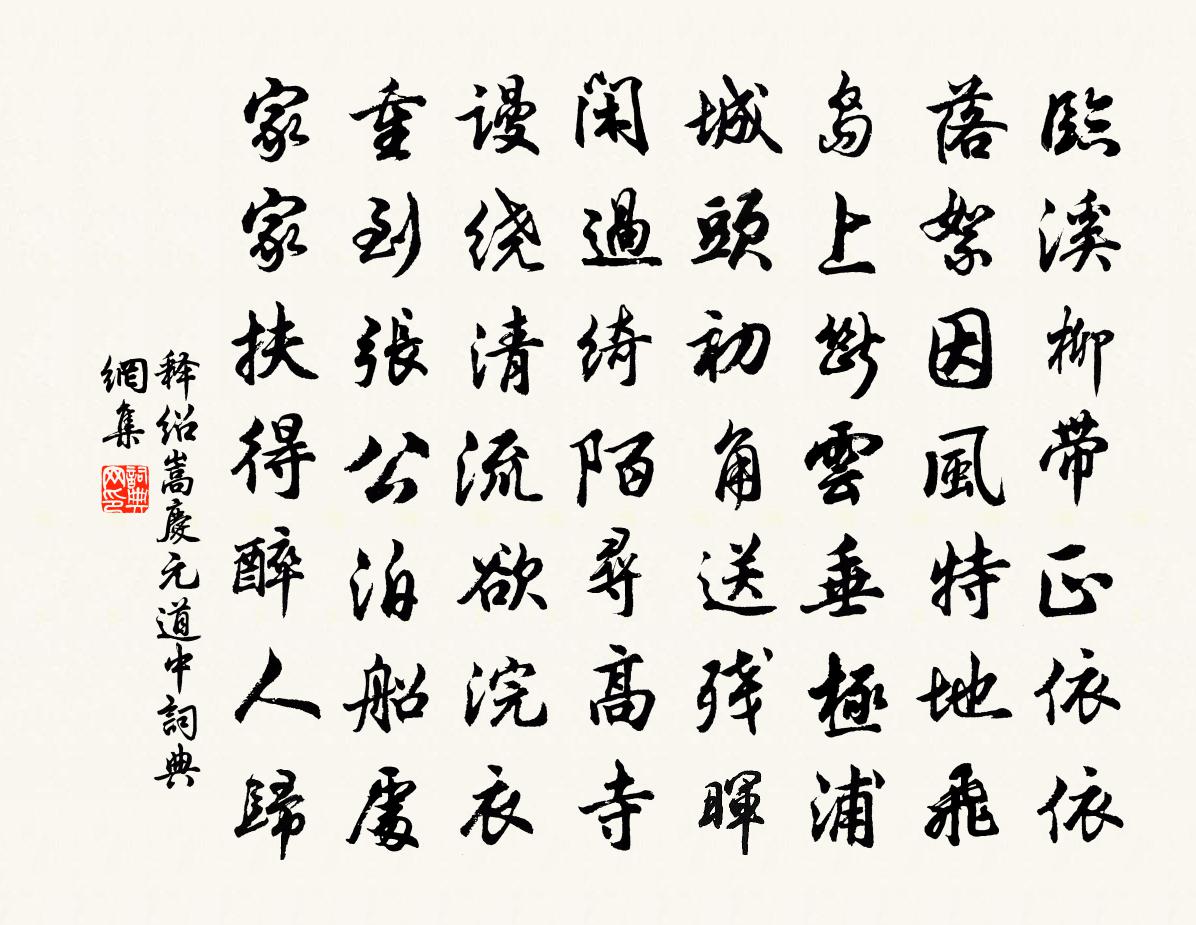 臨溪柳帶正依依
落絮因風特地飛
島上斷雲垂極浦
城頭初角送残暉
閑過綺陌尋高寺
谩绕清流欲浣衣
重到張公泊船處
家家扶得醉人歸
释绍嵩慶元道中詞典
網集
詞典网印